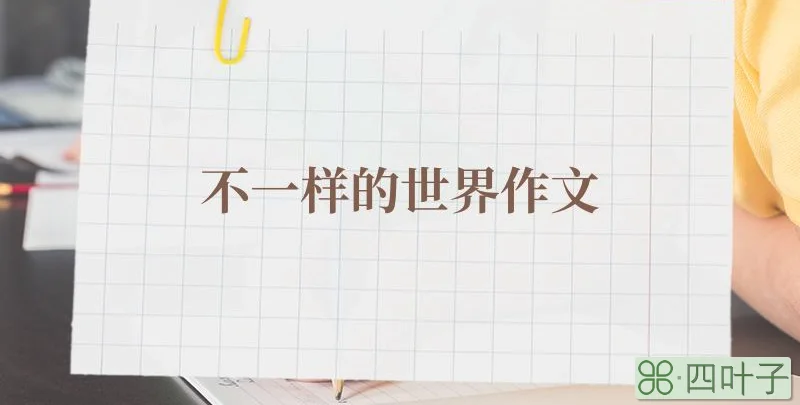 不一样的世界作文
四叶子